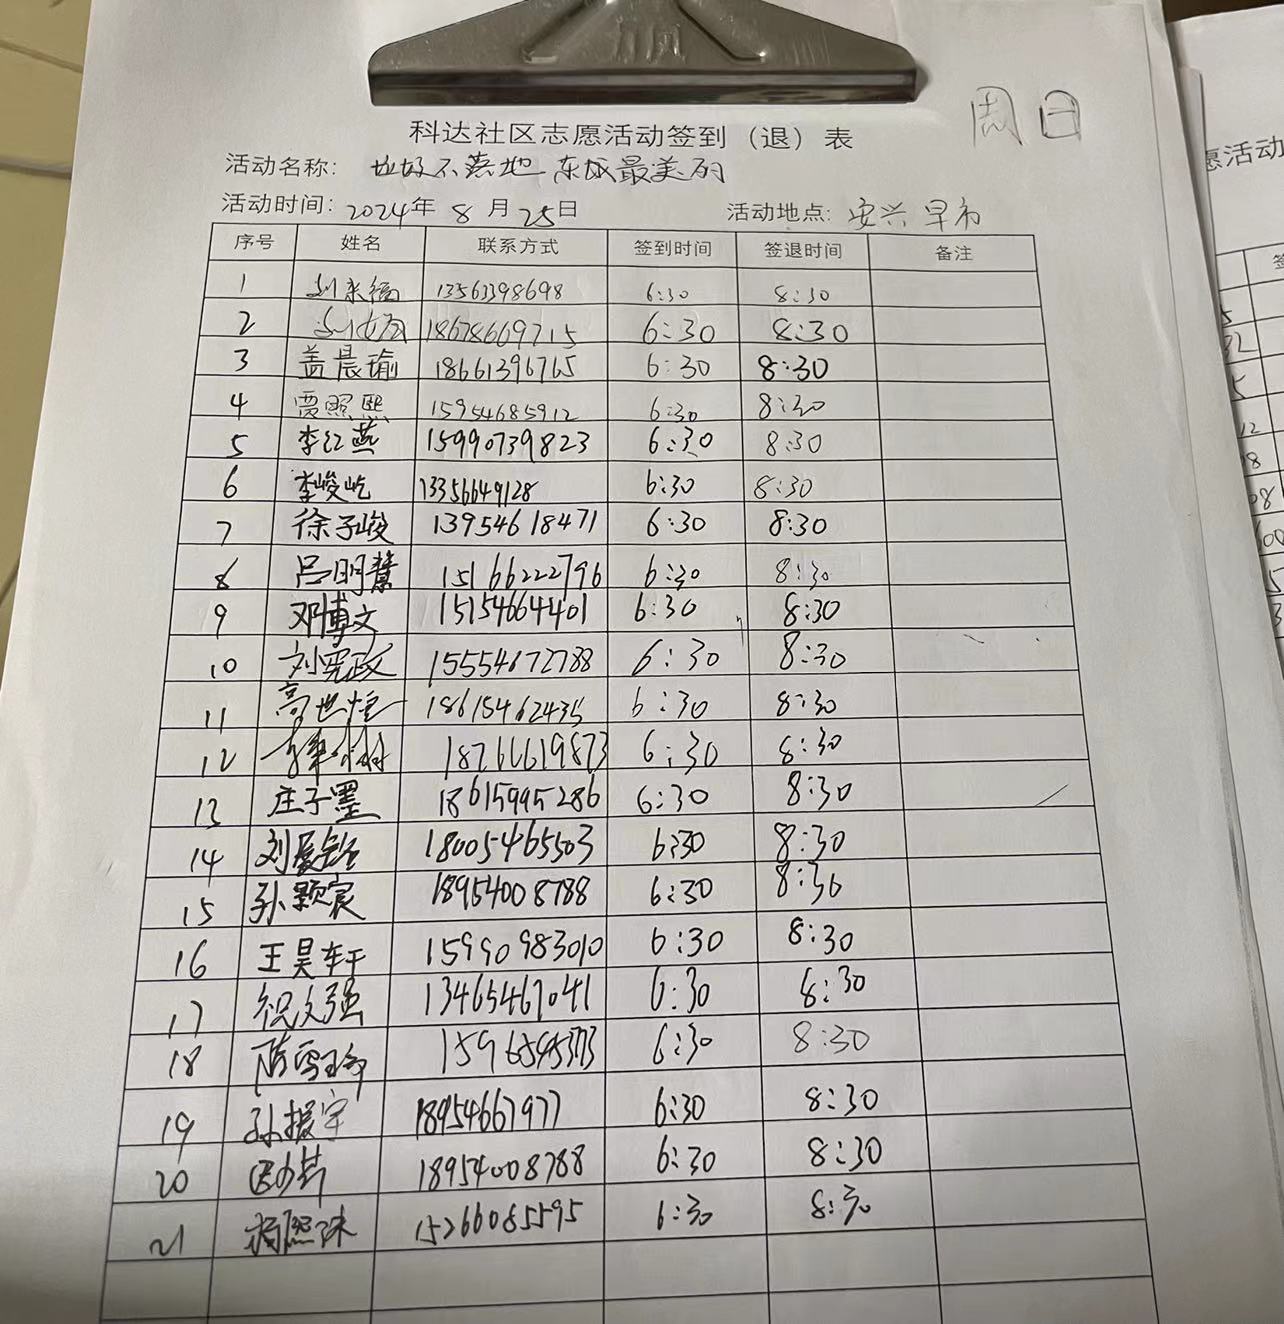 周日
科达社区志愿活动签到（退）表
活动名称： 垃圾不落地 东城最美丽
活动时间：2024年 8 月 25日 活动地点：安兴早市
序号 姓名 联系方式 签到时间 签退时间 备注
1 刘来福 13563398698 6:30 8:30
2 18678609715 6:30 8:30
3 盖晨瑜 18661396765 6:30 8:30
4 贾照熙 15954685912 6:30 8:30
5 李红燕 15990739823 6:30 8:30
6 李峻屹 13356649128 6:30 8:30
7 徐子峻 13954618471 6:30 8:30
8 吕明慧 15166222796 6:30 8:30
9 邓博文 15154664401 6:30 8:30
10 刘宪政 15554672788 6:30 8:30
11 高世煌 18615462435 6:30 8:30
12 18766619873 6:30 8:30
13 庄子墨 18615995286 6:30 8:30
14 刘晨 18005465503 6:30 8:30
15 孙颢宸 18954008788 6:30 8:30
16 王昊轩 15990983010 6:30 8:30
17 祝文强 13465467041 6:30 8:30
18 陈雪 6:30 8:30
19 孙振宇 18954667977 6:30 8:30
20 18954008788 6:30 8:30
21 杨熙 15266085595 6:30 8:30